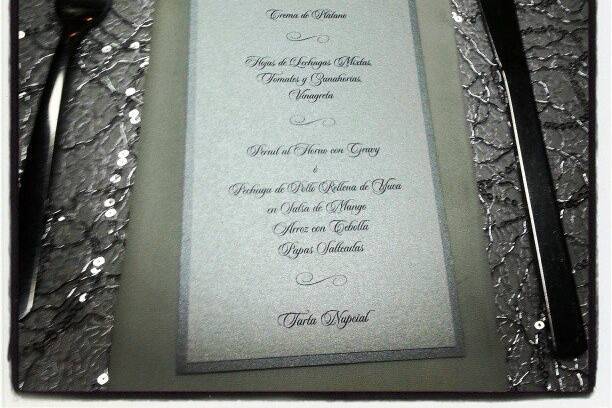 Crema de Platano
Hojas de Lechugas Mixtas,
Tomates y Zanahorias,
Vinagreta
Pernil al Horno con Gravy
ó
Pechuga de Pollo Rellena de Yuca
en Salsa de Mango
Arroz con Cebolla
Papas Salteadas
Tarta Nupcial